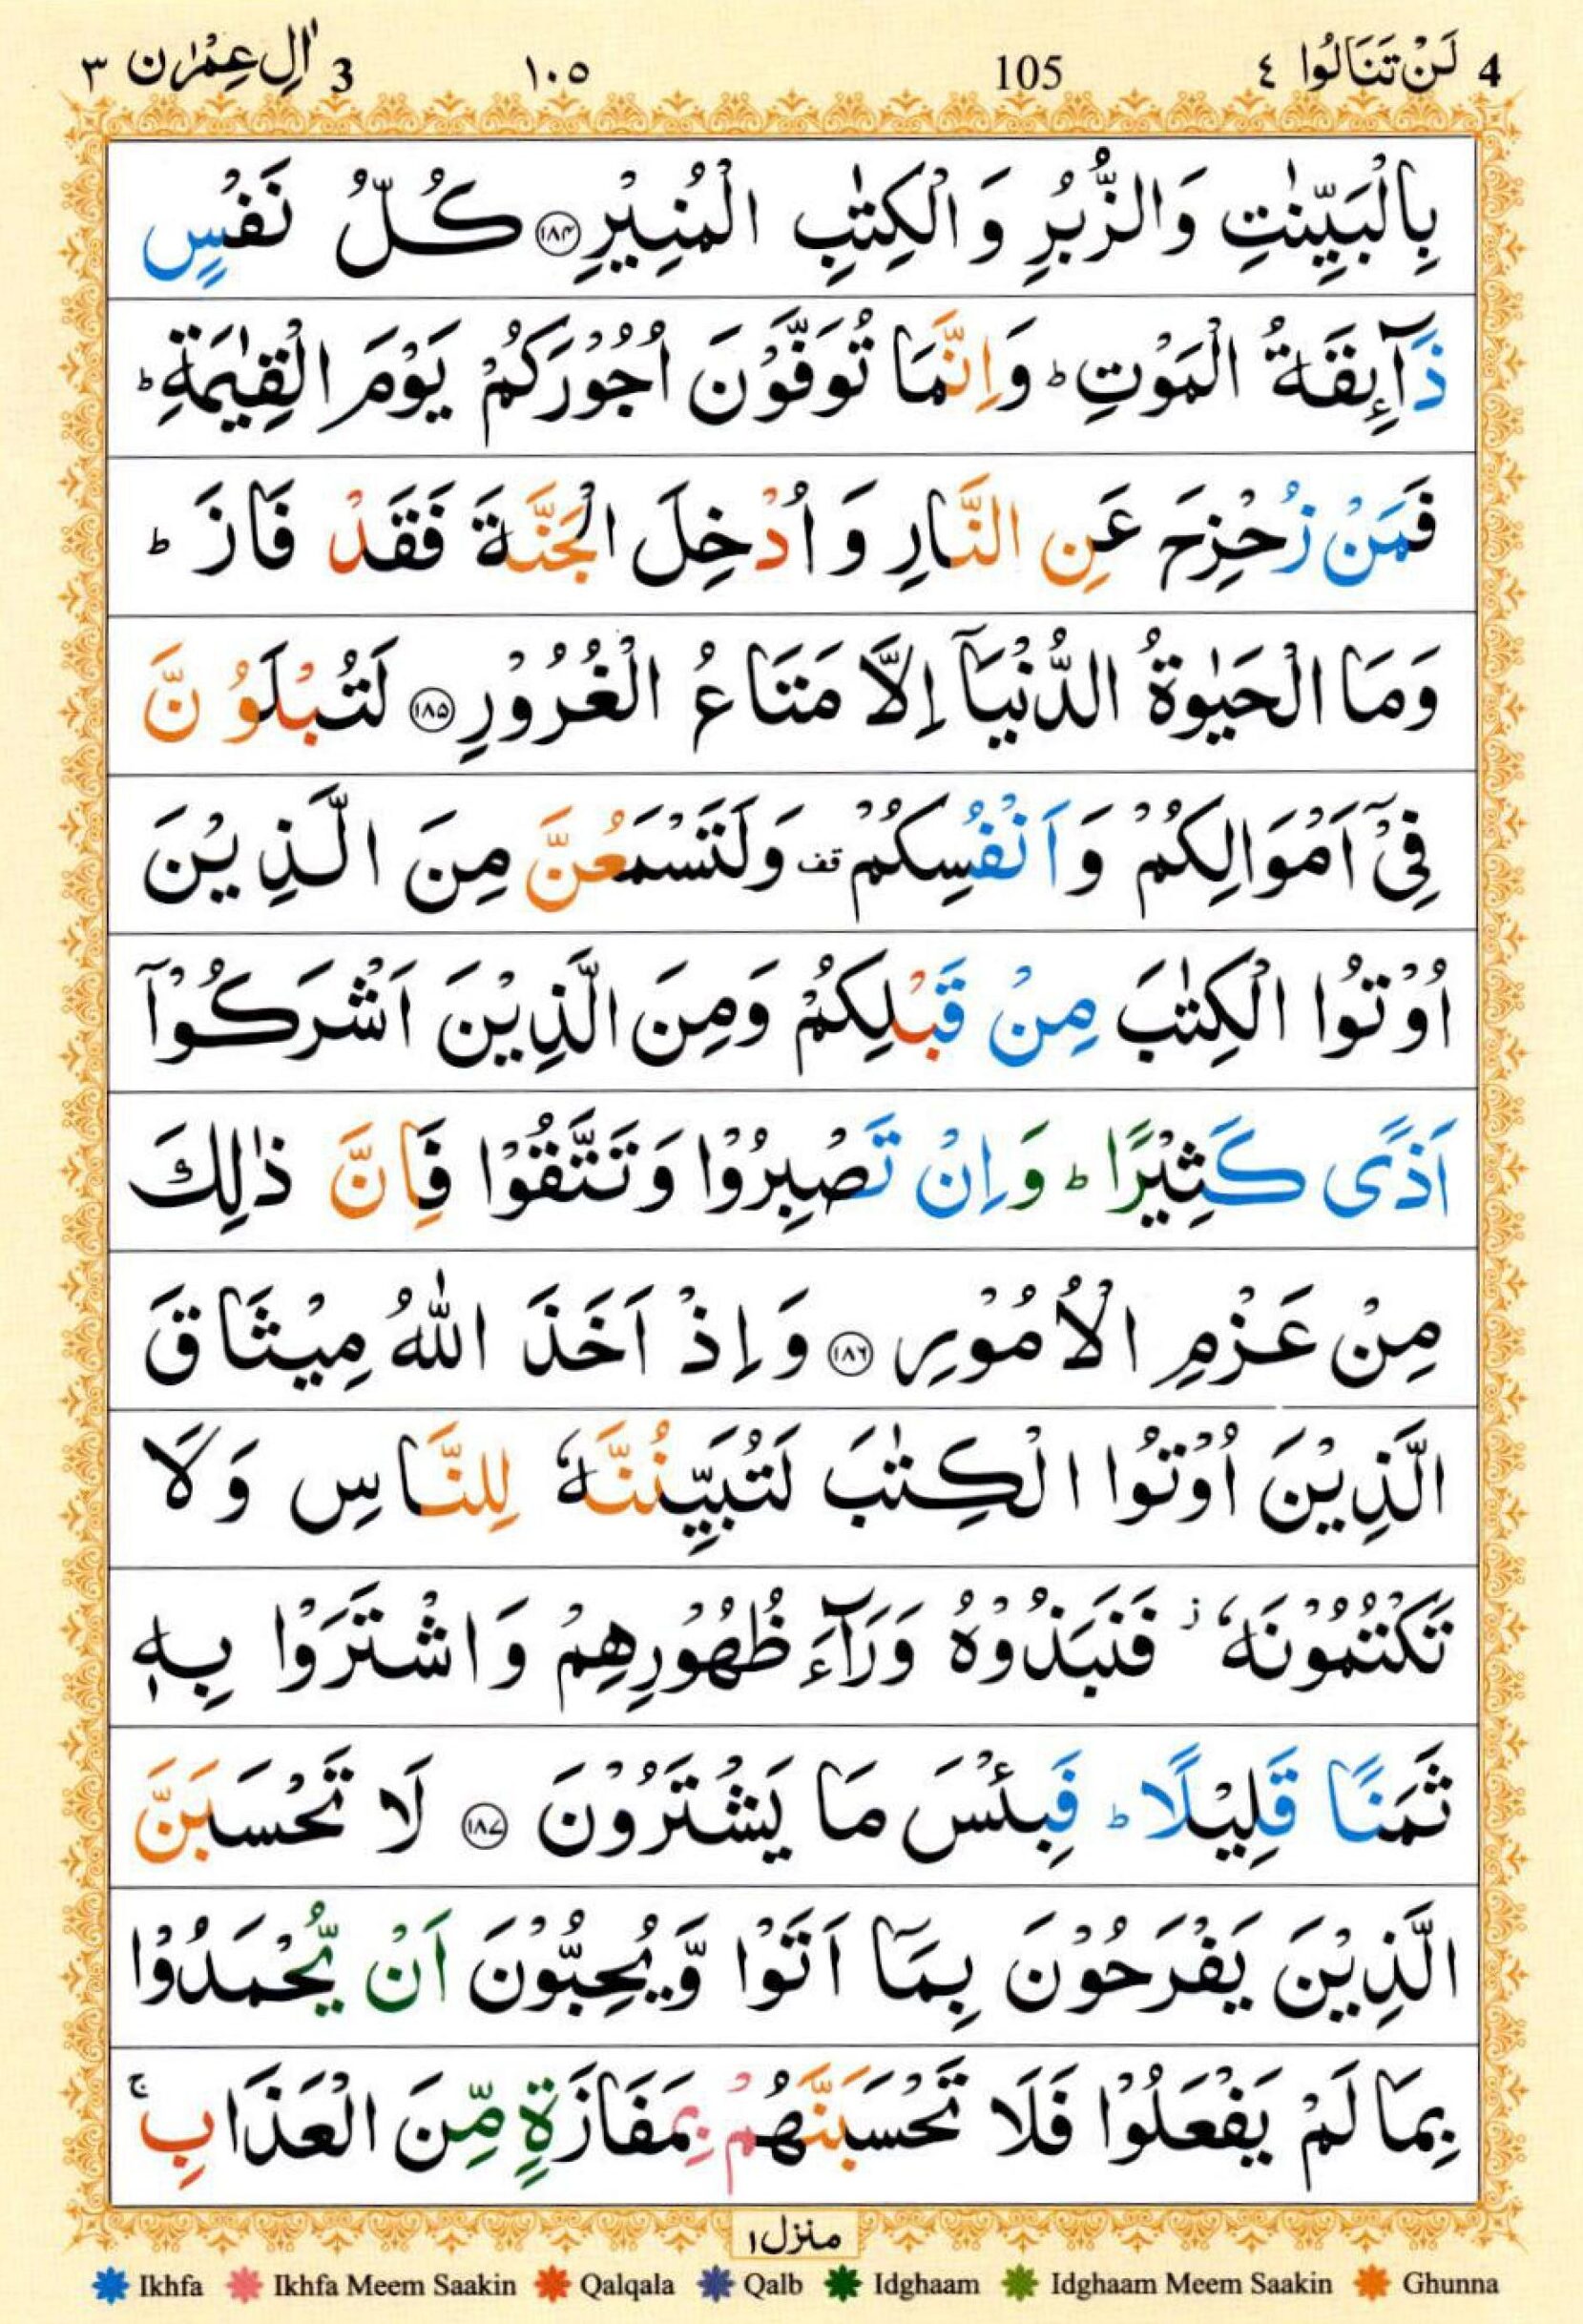 4 لَنْ تَنَالُوا ٤ 105 ١٠٥ 3 اٰلِ عِمْرٰن ٣
بِالْبَيِّنٰتِ وَالزُّبُرِ وَالْكِتٰبِ الْمُنِيْرِ ۝۱۸۴ كُلُّ نَفْسٍ
ذَآئِقَةُ الْمَوْتِ ؕ وَاِنَّمَا تُوَفَّوْنَ اُجُوْرَكُمْ يَوْمَ الْقِيٰمَةِ ؕ
فَمَنْ زُحْزِحَ عَنِ النَّارِ وَاُدْخِلَ الْجَنَّةَ فَقَدْ فَازَ ؕ
وَمَا الْحَيٰوةُ الدُّنْيَاۤ اِلَّا مَتَاعُ الْغُرُوْرِ ۝۱۸۵ لَتُبْلَوُنَّ
فِيْۤ اَمْوَالِكُمْ وَاَنْفُسِكُمْ قف وَلَتَسْمَعُنَّ مِنَ الَّذِيْنَ
اُوْتُوا الْكِتٰبَ مِنْ قَبْلِكُمْ وَمِنَ الَّذِيْنَ اَشْرَكُوْۤا
اَذًى كَثِيْرًا ؕ وَاِنْ تَصْبِرُوْا وَتَتَّقُوْا فَاِنَّ ذٰلِكَ
مِنْ عَزْمِ الْاُمُوْرِ ۝۱۸۶ وَاِذْ اَخَذَ اللّٰهُ مِيْثَاقَ
الَّذِيْنَ اُوْتُوا الْكِتٰبَ لَتُبَيِّنُنَّهٗ لِلنَّاسِ وَلَا
تَكْتُمُوْنَهٗ ؗ فَنَبَذُوْهُ وَرَآءَ ظُهُوْرِهِمْ وَاشْتَرَوْا بِهٖ
ثَمَنًا قَلِيْلًا ؕ فَبِئْسَ مَا يَشْتَرُوْنَ ۝۱۸۷ لَا تَحْسَبَنَّ
الَّذِيْنَ يَفْرَحُوْنَ بِمَاۤ اَتَوْا وَّيُحِبُّوْنَ اَنْ يُّحْمَدُوْا
بِمَا لَمْ يَفْعَلُوْا فَلَا تَحْسَبَنَّهُمْ بِمَفَازَةٍ مِّنَ الْعَذَابِ ۚ
منزل ۱
Ikhfa Ikhfa Meem Saakin Qalqala Qalb Idghaam Idghaam Meem Saakin Ghunna